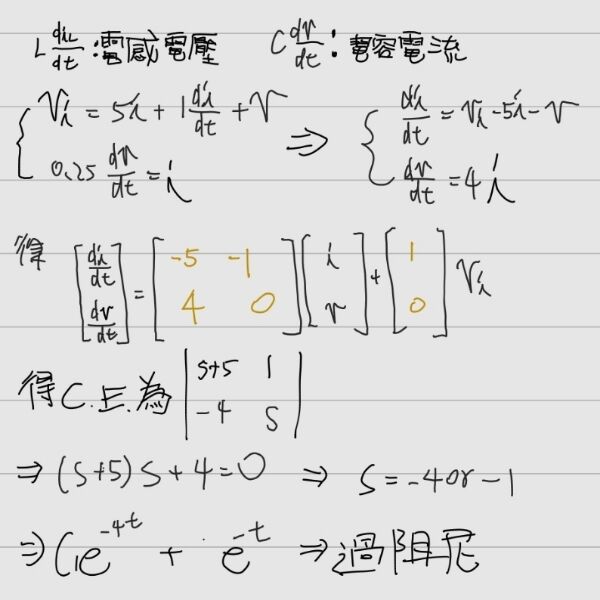 L di_L/dt：電感電壓　C dv/dt：電容電流
{ V_i = 5i + 1 di/dt + v ⇒ { di/dt = V_i - 5i - v
0.25 dv/dt = i　dv/dt = 4i
得 [di/dt; dv/dt] = [-5 -1; 4 0][i; v] + [1; 0] V_i
得 C.E.為 |s+5 1; -4 s|
⇒ (s+5)s + 4 = 0 ⇒ s = -4 or -1
⇒ C₁e^{-4t} + e^{-t} ⇒ 過阻尼